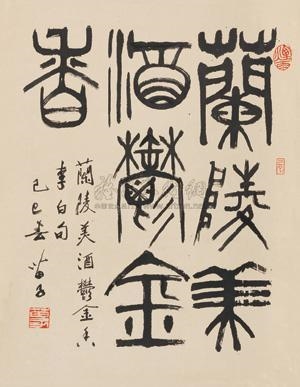 蘭陵美
酒鬱金
香
蘭陵美酒鬱金香
李白句
己巳春